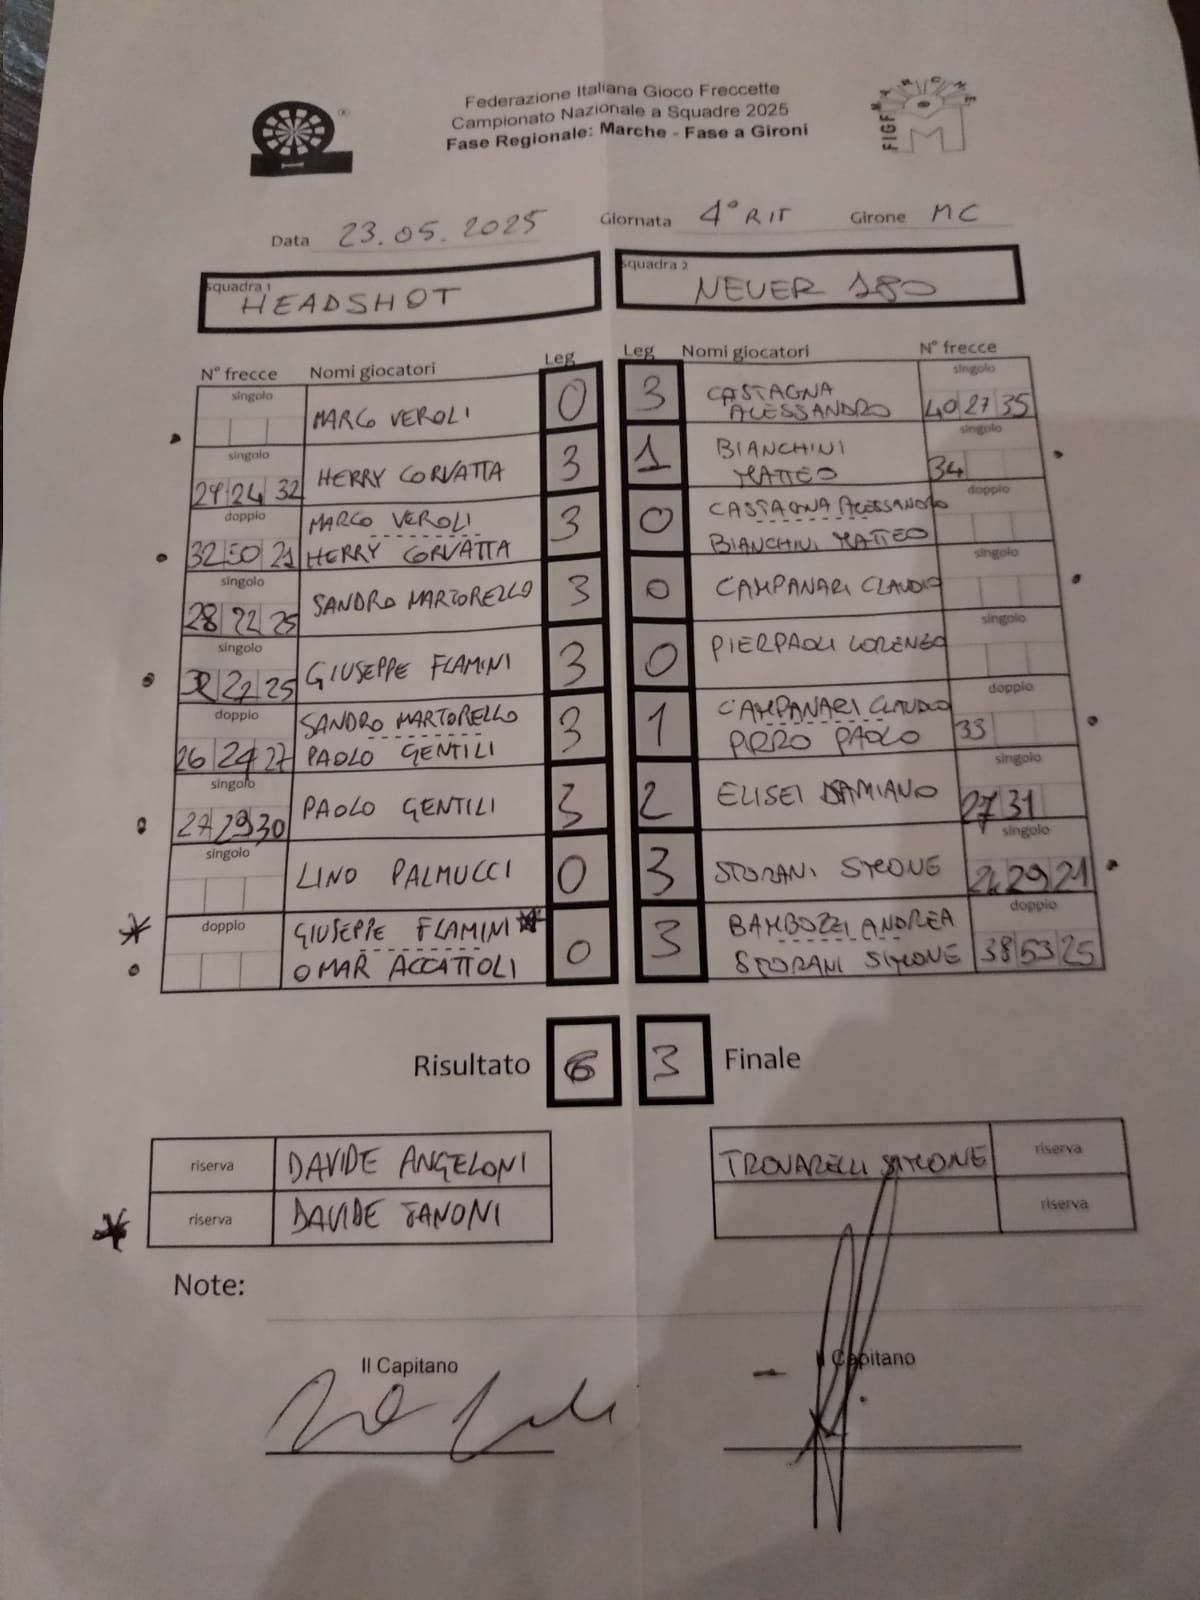 Federazione Italiana Gioco Freccette
Campionato Nazionale a Squadre 2025
Fase Regionale: Marche - Fase a Gironi
FIGF MARCHE
Data 23.05.2025 Giornata 4° RIT Girone MC
squadra 1 HEADSHOT
squadra 2 NEVER 180
N° frecce Nomi giocatori Leg Leg Nomi giocatori N° frecce
singolo MARCO VEROLI 0 3 CASTAGNA ALESSANDRO singolo 40 27 35
singolo 24 32 HERRY CORVATTA 3 1 BIANCHINI MATTEO singolo 34
doppio 32 50 21 MARCO VEROLI 3 0 CASTAGNA ALESSANDRO doppio
HERRY CORVATTA BIANCHINI MATTEO
singolo 28 22 25 SANDRO MARTORELLO 3 0 CAMPANARI CLAUDIO singolo
singolo 25 GIUSEPPE FLAMINI 3 0 PIERPAOLI LORENZO singolo
doppio 26 24 27 SANDRO MARTORELLO 3 1 CAMPANARI CLAUDIO doppio 33
PAOLO GENTILI PIRRO PAOLO
singolo 29 30 PAOLO GENTILI 3 2 ELISEI DAMIANO singolo 27 31
singolo LINO PALMUCCI 0 3 STORANI SIMONE singolo 29 21
doppio GIUSEPPE FLAMINI 0 3 BAMBOZZI ANDREA doppio 38 53 25
OMAR ACCATTOLI STORANI SIMONE
Risultato 6 3 Finale
riserva DAVIDE ANGELONI TROVARELLI SIMONE riserva
riserva DAVIDE IANONI riserva
Note:
Il Capitano Il Capitano